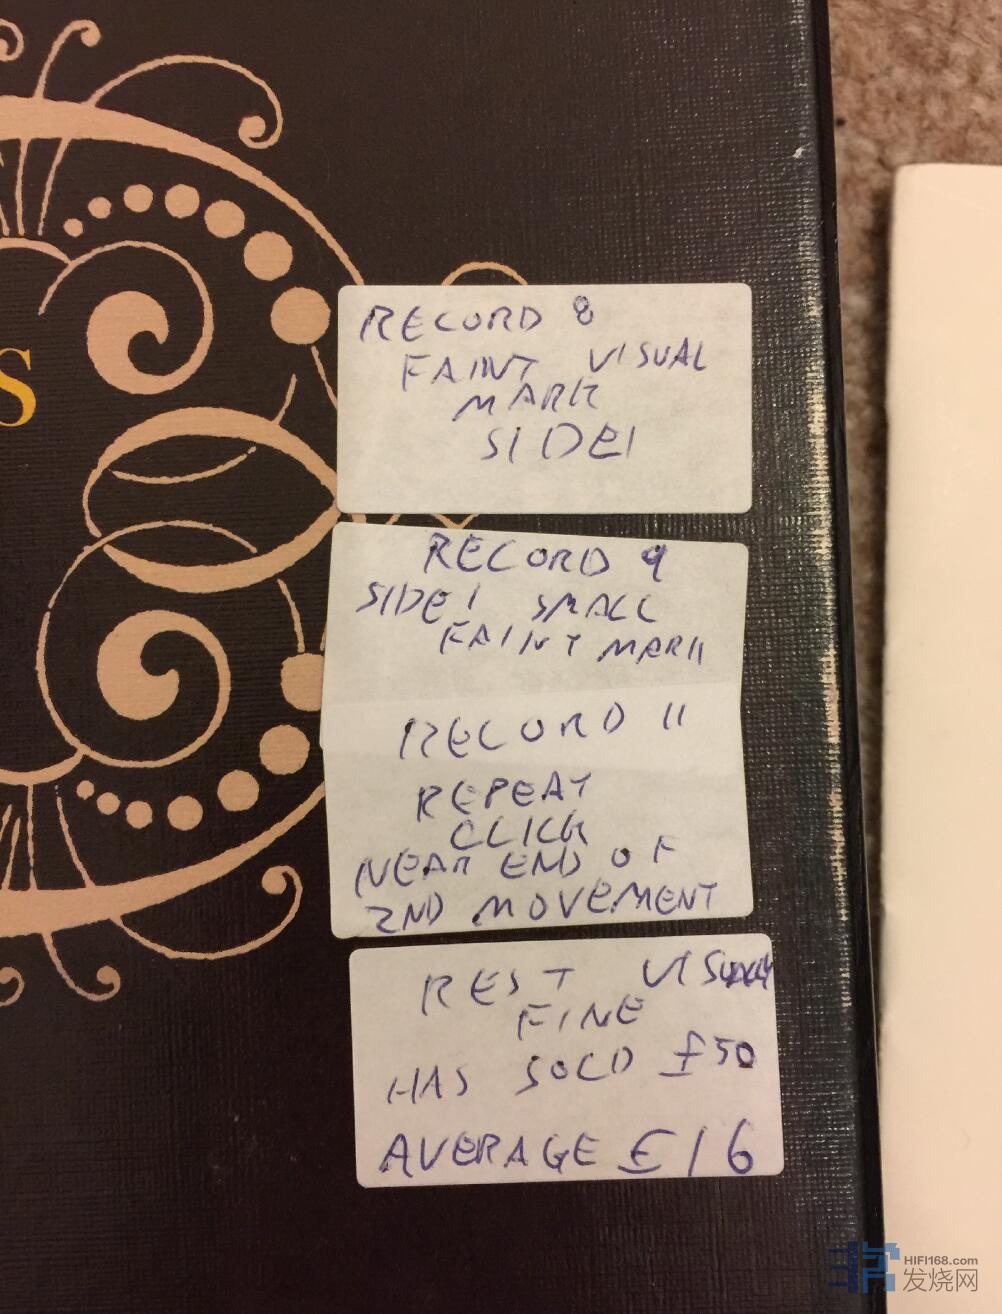 S
RECORD 8
FAINT VISUAL
MARK
SIDE 1
RECORD 9
SIDE 1 SMALL
FAINT MARK
RECORD 11
REPEAT
CLICK
NEAR END OF
2ND MOVEMENT
REST VISUALLY
FINE
HAS SOLD £50
AVERAGE £16
HIFI168.com
发烧网